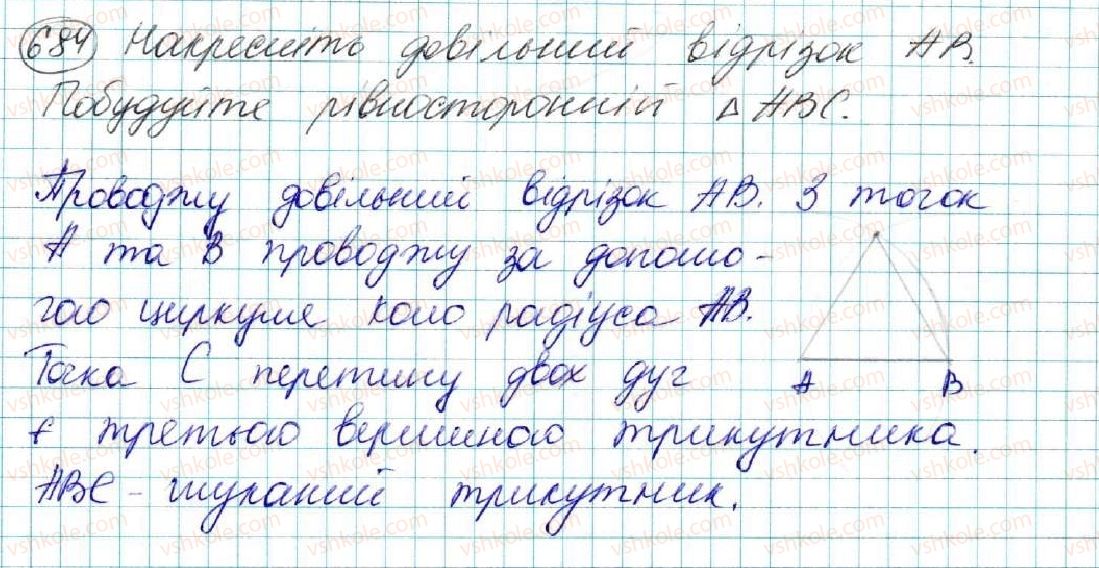 684 Накресліть довільний відрізок AB.
Побудуйте рівносторонній △ ABC.
Проводжу довільний відрізок AB. З точок
A та B проводжу за допомо-
гою циркуля коло радіуса AB.
Точка C перетину двох дуг
є третьою вершиною трикутника.
ABC - шуканий трикутник.
A B
vshkole.com